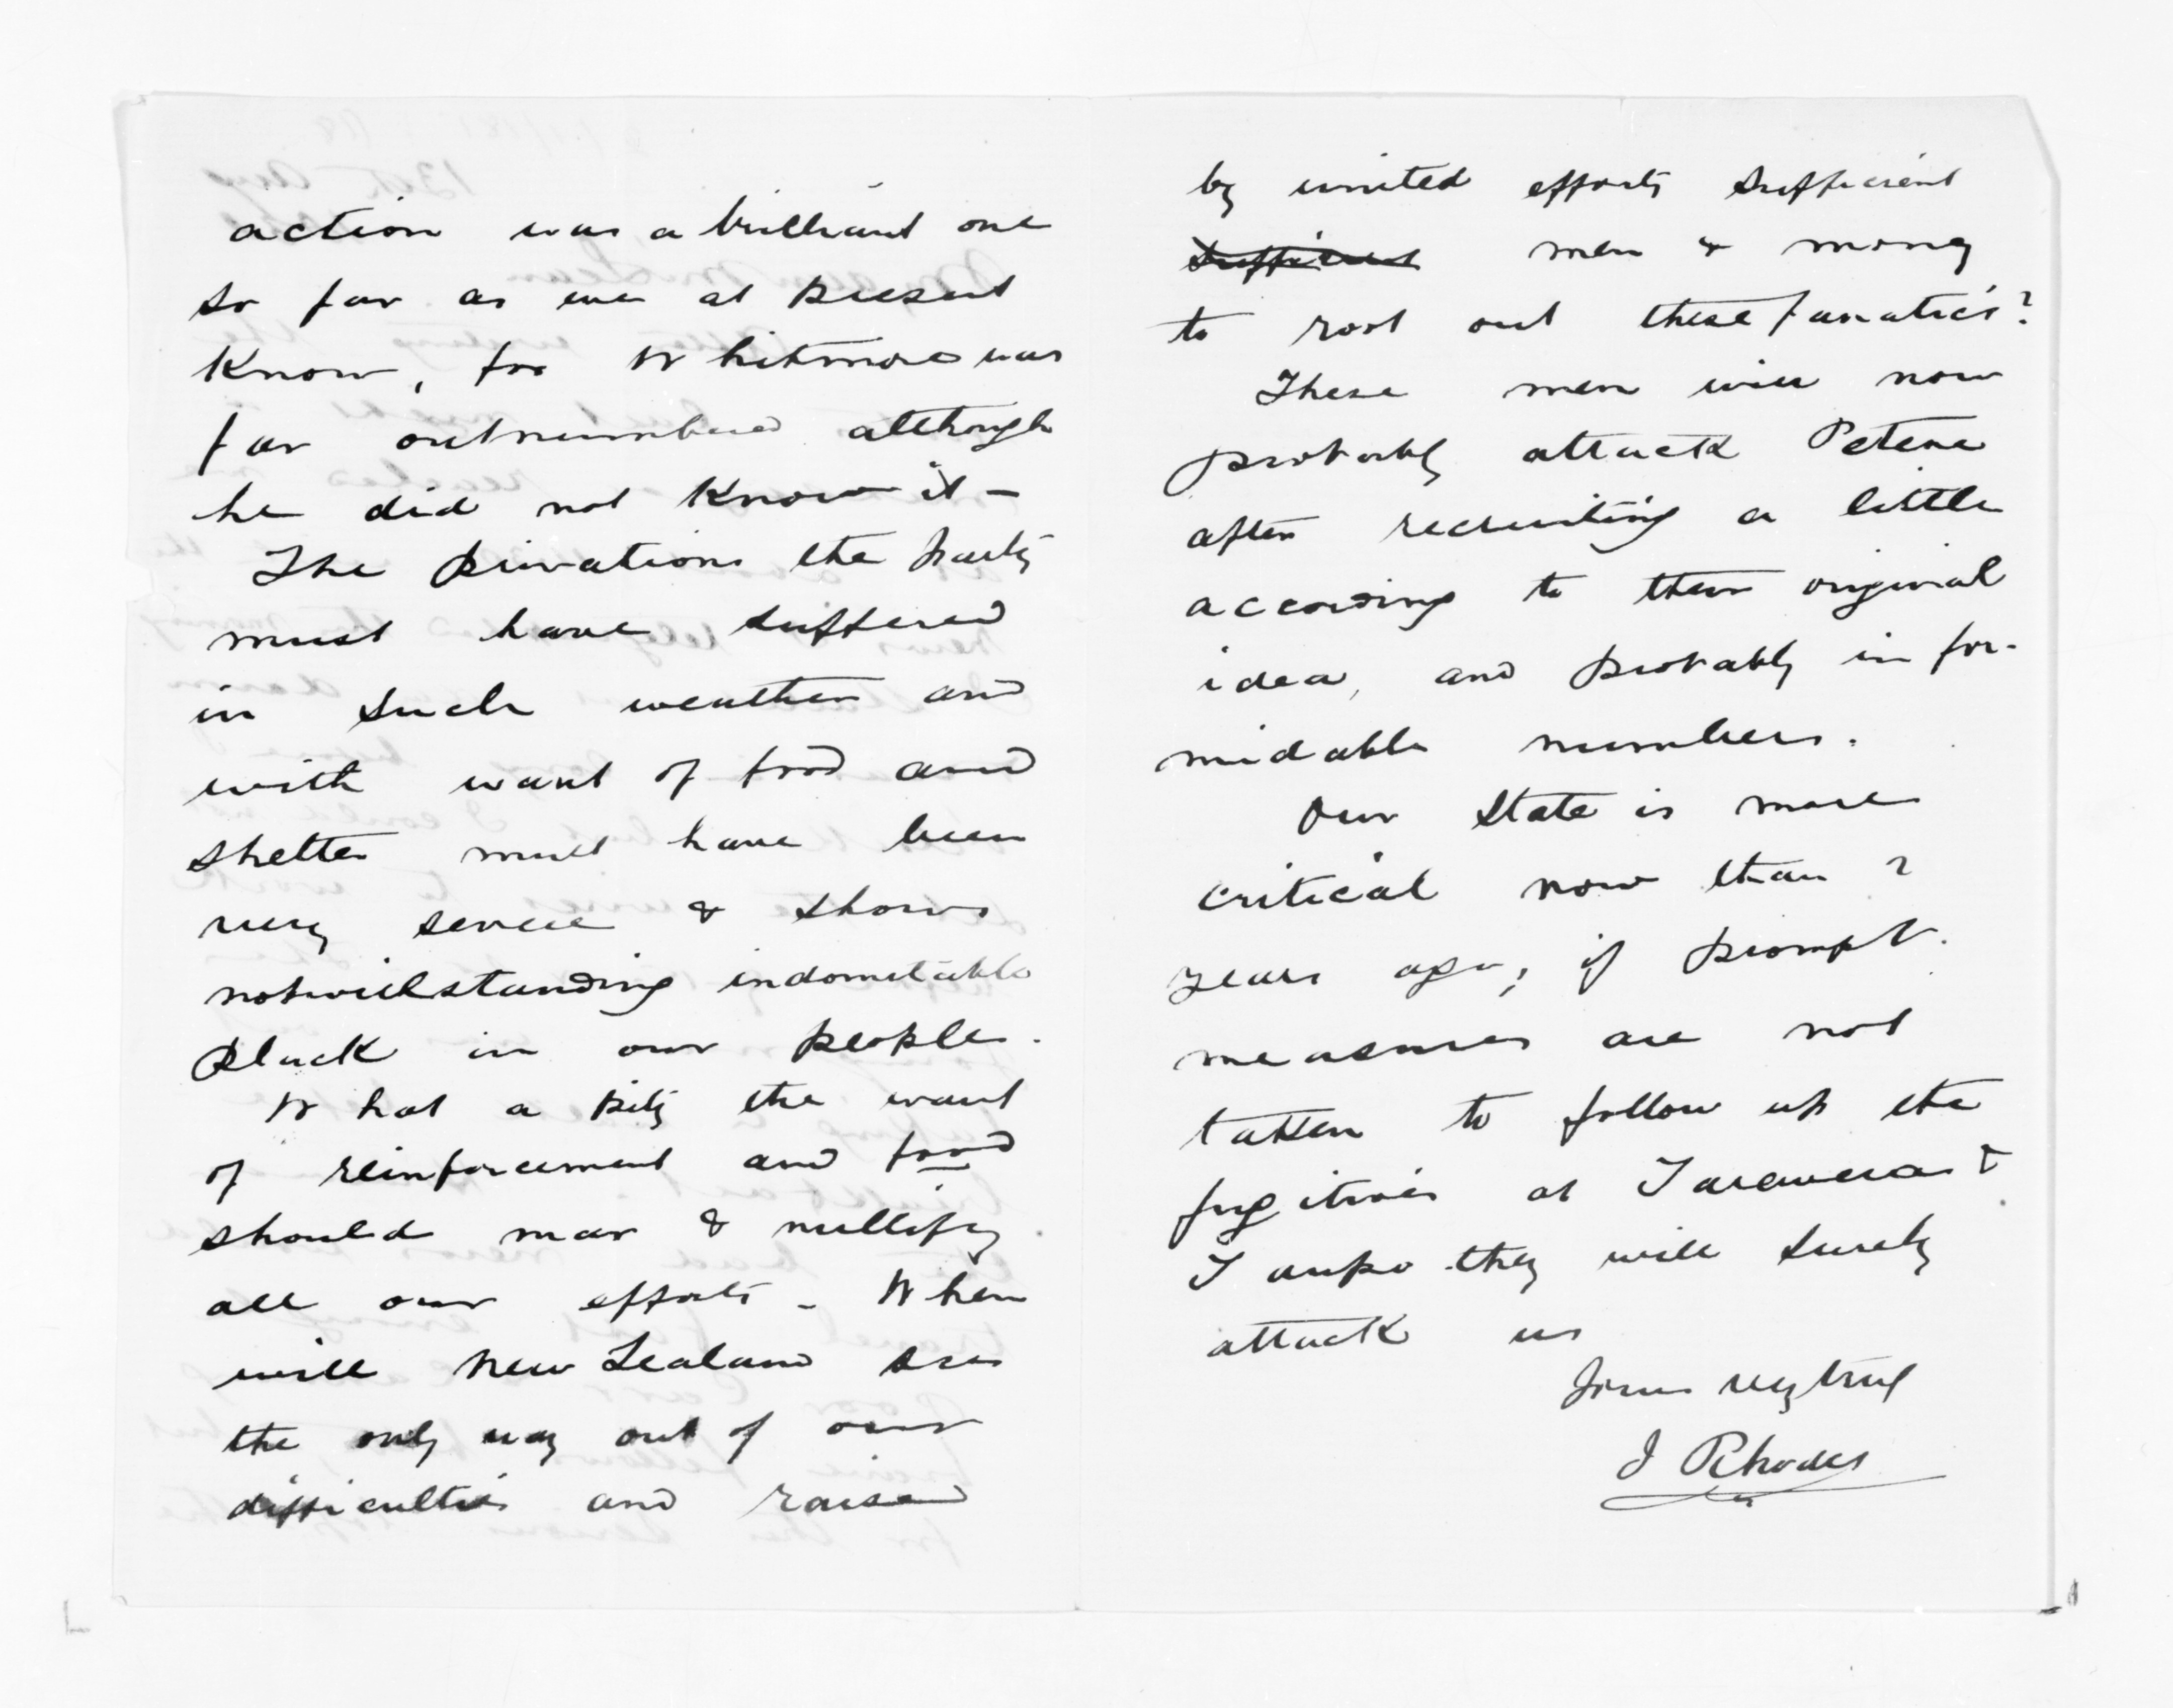 action was a brilliant one
so far as we at present
know, for Whitmore was
far outnumbered although
he did not know it -
The privations the party
must have suffered
in such weather and
with want of food and
shelter must have been
very severe & shows
notwithstanding indomitable
pluck in our people.
What a pity the want
of reinforcement and food
should mar & nullify
all our efforts - When
will New Zealand see
the only way out of our
difficulties and raise
by united efforts sufficient
sufficient men & money
to root out these fanatics?
These men will now
probably attack Petene
after recruiting a little
according to their original
idea, and probably in for-
midable numbers.
Our State is more
critical now than 2
years ago, if prompt
measures are not
taken to follow up the
fugitives at Tarawera &
they will surely
attack us
Yours very truly
J Rhodes